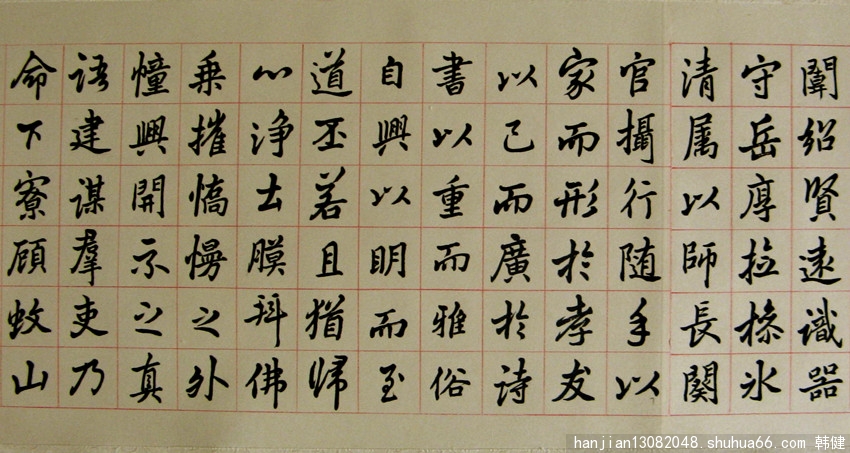 闡紹賢遠識器
守岳厚拉操氷
清属以師長闋
官攝行随手以
家而形於孝友
以己而廣於詩
書以重而雅俗
自興以明而至
道丕若且猶歸
心淨土膜拜佛
乘摧憍慢之外
幢興開示之真
語建謀羣吏乃
命下寮顧蚊山
hanjian13082048.shuhua66.com 韩健